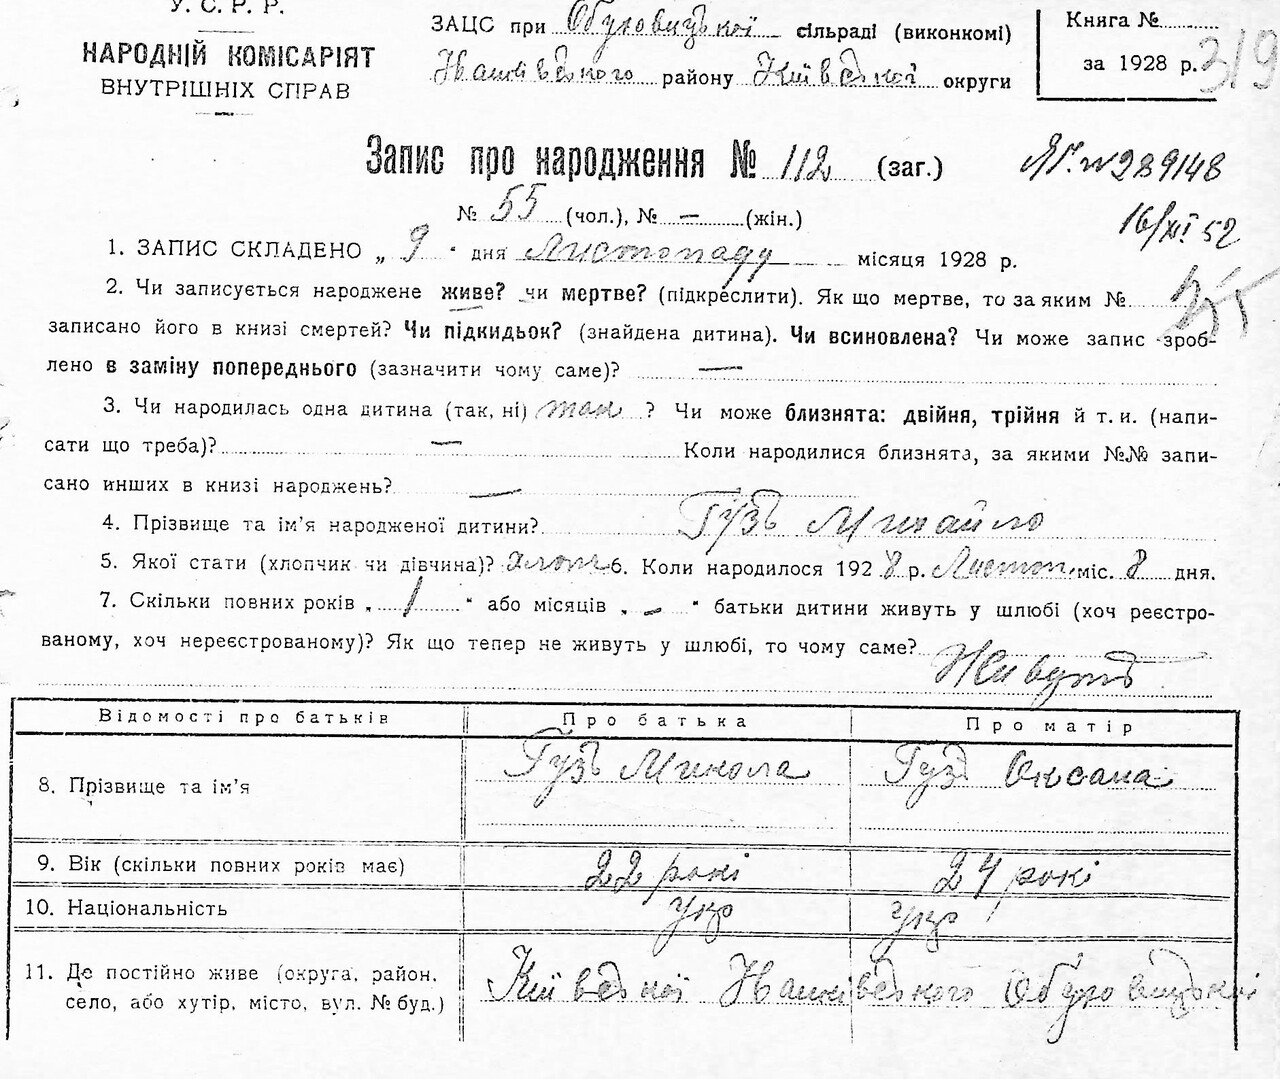 У. С. Р. Р.
НАРОДНІЙ КОМІСАРІЯТ
ВНУТРІШНІХ СПРАВ
ЗАЦС при Обуховицької сільраді (виконкомі)
Іванківського району Київської округи
Книга №
за 1928 р.
319
Запис про народження № 112 (заг.)
№ 55 (чол.), № — (жін.)
ЯГ. № 289148
16/XI 52
1. ЗАПИС СКЛАДЕНО „ 9 “ дня Листопаду місяця 1928 р.
2. Чи записується народжене живе? чи мертве? (підкреслити). Як що мертве, то за яким №
записано його в книзі смертей? Чи підкидьок? (знайдена дитина). Чи всиновлена? Чи може запис зроб-
лено в заміну попереднього (зазначити чому саме)? —
3. Чи народилась одна дитина (так, ні) так ? Чи може близнята: двійня, трійня й т. и. (напи-
сати що треба)? — Коли народилися близнята, за якими №№ запи-
сано инших в книзі народжень? —
4. Прізвище та ім'я народженої дитини? Гузь Михайло
5. Якої стати (хлопчик чи дівчина)? хлопч 6. Коли народилося 1928 р. Листоп. міс. 8 дня.
7. Скільки повних років „ 1 “ або місяців „ – “ батьки дитини живуть у шлюбі (хоч реєстро-
ваному, хоч нереєстрованому)? Як що тепер не живуть у шлюбі, то чому саме?
Живуть
Відомості про батьків Про батька Про матір
8. Прізвище та ім'я Гузь Микола Гузь Оксана
9. Вік (скільки повних років має) 22 рокі 24 рокі
10. Національність укр укр
11. Де постійно живе (округа, район, село, або хутір, місто, вул. № буд.) Київської Іванківського Обуховицької